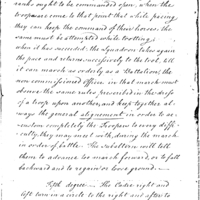 ranks ought to be commanded open, when the
troops are come to that point that while passing,
they can keep the command of their horses, the
same must be attempted while trotting
when it has succeeded, the Squadron takes again
the pace and returns successively to the trot, till
it can march as orderly as a Battalion; the
non commissioned officers in that march must
observe the same rules, prescribed in the dress
of a troop upon another, and keep together al-
ways the general alignement in order to ac-
custom completely the Troopers to every diffi-
culty, they may meet with, during the march
in order of battle. The subaltern will tell
them to advance too much forward, or to fall
backward and to regain or loose ground.
Fifth degree The Cadre right and
left turn in a circle to the right and after to